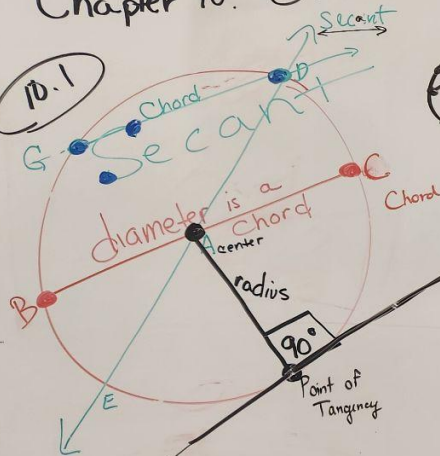 Chapter 10:
10.1
Secant
D
Chord
G
Secant
C
diameter is a
chord
Chord
A center
B
radius
90°
E
Point of
Tangency